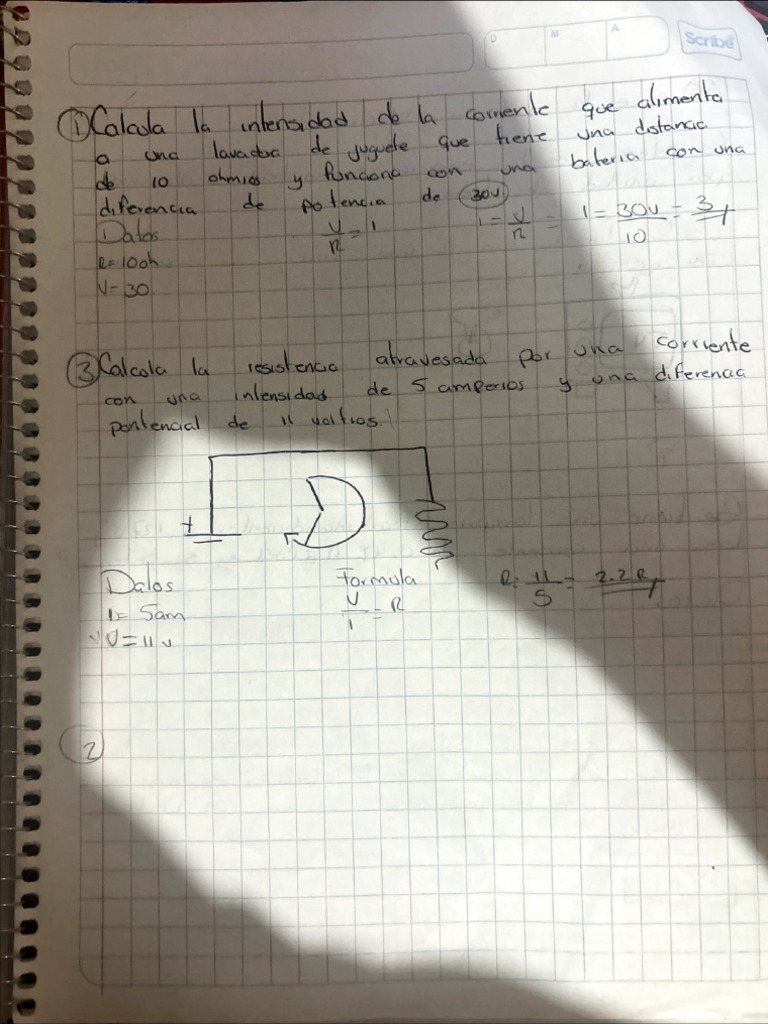 D M A Scribe
① Calcula la intensidad de la corriente que alimenta
a una lavadora de juguete que tiene una distancia
de 10 ohmios y funciona con una bateria con una
diferencia de potencia de 30v
Datos
R=10oh
V=30
V/R = I
I = V/R = I = 30v/10 = 3
③ Calcula la resistencia atravesada por una corriente
con una intensidad de 5 amperios y una diferencia
pontencial de 11 voltios.
+
Datos
I= 5am
V=11v
Formula
V/I = R
R= 11/5 = 2.2R
2